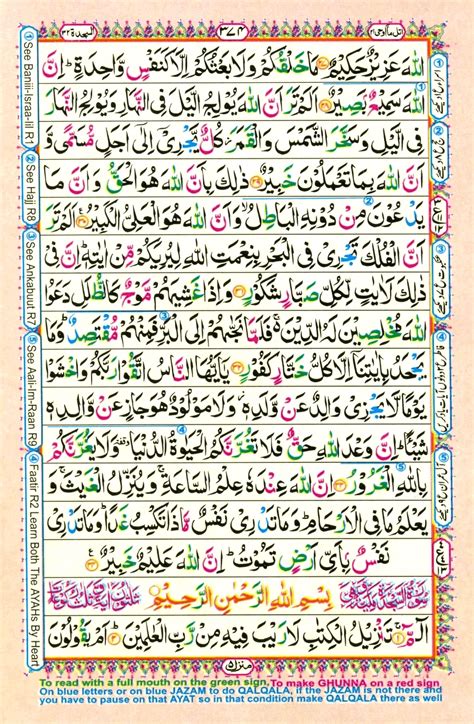 اتل ما اوحی ۲۱
۳۷۴
السجدة ۳۲
اللّٰهَ عَزِیْزٌ حَكِیْمٌ ۲۷ مَا خَلْقُكُمْ وَلَا بَعْثُكُمْ اِلَّا كَنَفْسٍ وَّاحِدَةٍ ؕ اِنَّ
اللّٰهَ سَمِیْعٌۢ بَصِیْرٌ ۲۸ اَلَمْ تَرَ اَنَّ اللّٰهَ یُوْلِجُ الَّیْلَ فِی النَّهَارِ وَیُوْلِجُ النَّهَارَ
فِی الَّیْلِ وَسَخَّرَ الشَّمْسَ وَالْقَمَرَ ؗ كُلٌّ یَّجْرِیْۤ اِلٰۤی اَجَلٍ مُّسَمًّی وَّ
اَنَّ اللّٰهَ بِمَا تَعْمَلُوْنَ خَبِیْرٌ ۲۹ ذٰلِكَ بِاَنَّ اللّٰهَ هُوَ الْحَقُّ وَاَنَّ مَا
یَدْعُوْنَ مِنْ دُوْنِهِ الْبَاطِلُ ۙ وَاَنَّ اللّٰهَ هُوَ الْعَلِیُّ الْكَبِیْرُ ۳۰ اَلَمْ تَرَ
اَنَّ الْفُلْكَ تَجْرِیْ فِی الْبَحْرِ بِنِعْمَتِ اللّٰهِ لِیُرِیَكُمْ مِّنْ اٰیٰتِهٖ ؕ اِنَّ فِیْ
ذٰلِكَ لَاٰیٰتٍ لِّكُلِّ صَبَّارٍ شَكُوْرٍ ۳۱ وَاِذَا غَشِیَهُمْ مَّوْجٌ كَالظُّلَلِ دَعَوُا
اللّٰهَ مُخْلِصِیْنَ لَهُ الدِّیْنَ ۚ فَلَمَّا نَجّٰىهُمْ اِلَی الْبَرِّ فَمِنْهُمْ مُّقْتَصِدٌ ؕ وَمَا
یَجْحَدُ بِاٰیٰتِنَاۤ اِلَّا كُلُّ خَتَّارٍ كَفُوْرٍ ۳۲ یٰۤاَیُّهَا النَّاسُ اتَّقُوْا رَبَّكُمْ وَاخْشَوْا
یَوْمًا لَّا یَجْزِیْ وَالِدٌ عَنْ وَّلَدِهٖ ؗ وَلَا مَوْلُوْدٌ هُوَ جَازٍ عَنْ وَّالِدِهٖ
شَیْـًٔا ؕ اِنَّ وَعْدَ اللّٰهِ حَقٌّ فَلَا تَغُرَّنَّكُمُ الْحَیٰوةُ الدُّنْیَا ۥ وَلَا یَغُرَّنَّكُمْ
بِاللّٰهِ الْغَرُوْرُ ۳۳ اِنَّ اللّٰهَ عِنْدَهٗ عِلْمُ السَّاعَةِ ۚ وَیُنَزِّلُ الْغَیْثَ ۚ وَ
یَعْلَمُ مَا فِی الْاَرْحَامِ ؕ وَمَا تَدْرِیْ نَفْسٌ مَّاذَا تَكْسِبُ غَدًا ؕ وَمَا تَدْرِیْ
نَفْسٌۢ بِاَیِّ اَرْضٍ تَمُوْتُ ؕ اِنَّ اللّٰهَ عَلِیْمٌ خَبِیْرٌ ۳۴
بِسْمِ اللّٰهِ الرَّحْمٰنِ الرَّحِیْمِ
الٓمّٓ ۱ تَنْزِیْلُ الْكِتٰبِ لَا رَیْبَ فِیْهِ مِنْ رَّبِّ الْعٰلَمِیْنَ ۲ اَمْ یَقُوْلُوْنَ
منزل ۵
① See Baniii-Israa-Iil R1
② See Hajj R8
③ See Ankabuut R7
⑤ See Aali-Im-Raan R9
④ Faatir R2 Learn Both The AYAHs By Heart
To read with a full mouth on the green sign. To make GHUNNA on a red sign
On blue letters or on blue JAZAM to do QALQALA, if the JAZAM is not there and
you have to pause on that AYAT so in that condition make QALQALA there as well